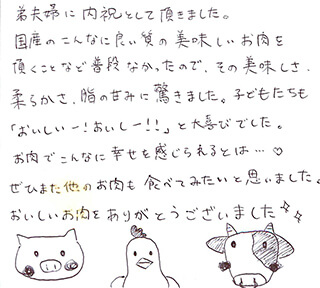 弟夫婦に内祝として頂きました。
国産のこんなに良い質の美味しいお肉を
頂くことなど普段なかったので、その美味しさ、
柔らかさ、脂の甘みに驚きました。子どもたちも
「おいしいー!おいしー!!」と大喜びでした。
お肉でこんなに幸せを感じられるとは…♡
ぜひまた他のお肉も食べてみたいと思いました。
おいしいお肉をありがとうございました